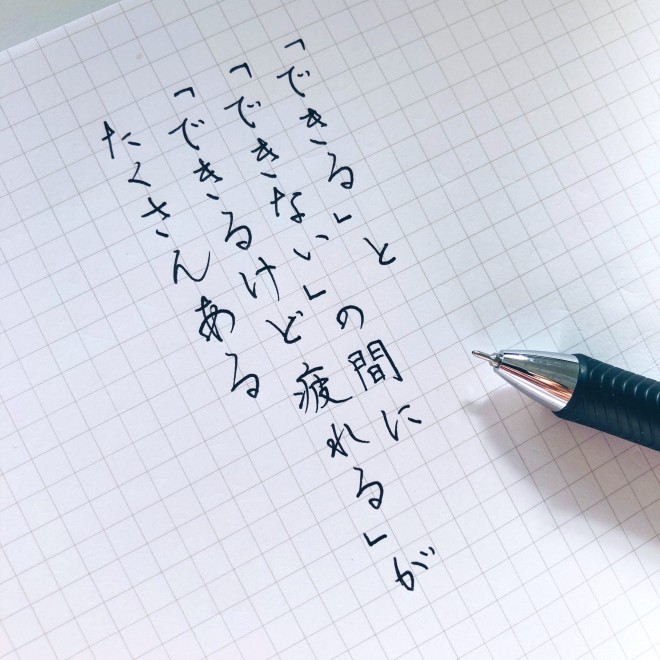 「できる」と
「できない」の間に
「できるけど疲れる」が
たくさんある